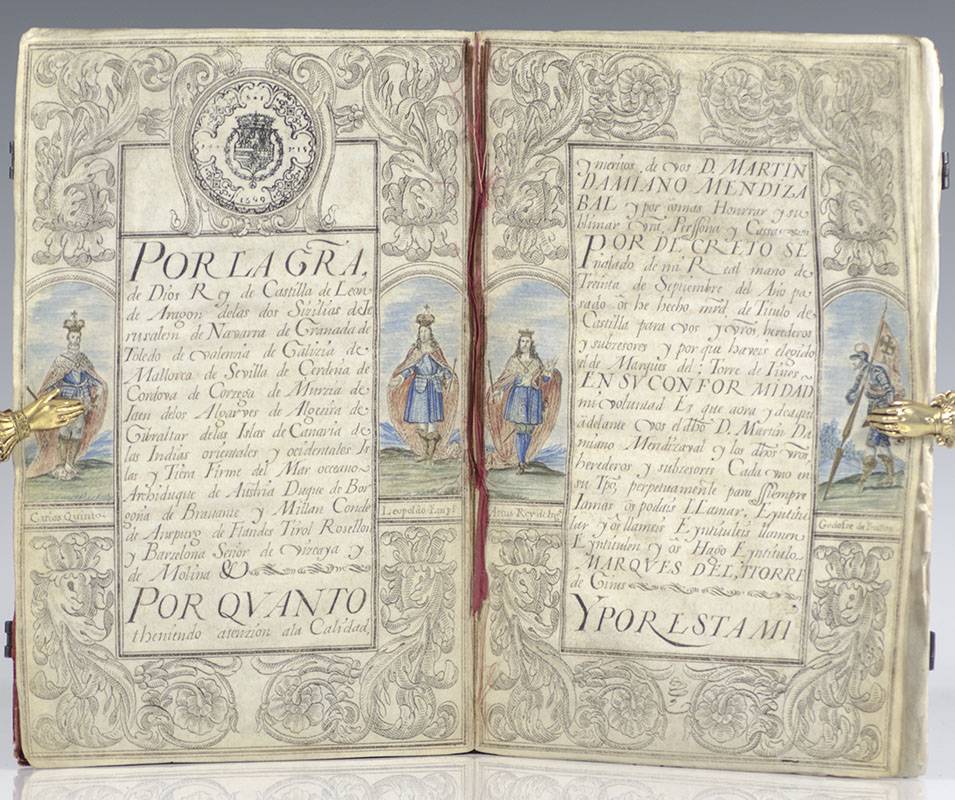 1699
POR LA GRA,
de Dios Rey de Castilla de Leon
de Aragon delas dos Sizilias de Ie
rusalem de Navarra de Granada de
Toledo de valenzia de Galizia de
Mallorca de Sevilla de Cerdeña de
Cordova de Corzega de Murzia de
Iaen delos Algarves de Algezira de
Gibraltar delas Islas de Canaria de
las Indias orientales y ocidentales Is
las y Tierra Firme del Mar oceano
Archiduque de Austria Duque de Bor
goña de Bravante y Milan Conde
de Auspurg de Flandes Tirol Rosellon
y Barzelona Señor de vizcaya y
de Molina &
POR QVANTO
theniendo atenzion ala Calidad,
Carlos Quinto
Leopoldo
y meritos de vos D. MARTIN
DAMIANO MENDIZA
BAL y por mas Honrrar y su
blimar vrã, Perssona y Cassa
POR DECRETO SE
ñalado de mi Real mano de
Treinta de Septiembre del Año pa
sado ôs he hecho mrd. de Titulo de
Castilla para vos y vrõs herederos
y subzesores y por que haveis elegido
el de Marques del Torre de Gines
EN SV CONFORMIDAD
mi voluntad Es que aora y de aqui
adelante vos el dhõ D. Martin Da
miano Mendizaval y los dhõs vrõs
herederos y subzesores Cada uno en
su Tpõ, perpetuamente para ssiempre
Iamas ôs podais LLamar, Eyntitu
lar y ôs llamen Eyntitulen
Eyntitulen y ôs Hago Eyntitulo
MARQVES DEL, TIORRE
de Gines
Y POR ESTA MI
Artus Rey de
Godofre de